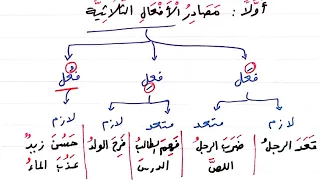 أولًا : مَصَادِرُ الْأَفْعَالِ الثُّلَاثِيَّةِ
فَعَل فَعِل فَعُل
لازم متعد متعد لازم لازم
قَعَدَ الرجلُ ضَرَبَ الرجلُ فَهِمَ الطالبُ فَرِحَ الولدُ حَسُنَ زيدٌ
اللصَّ الدرسَ عَذُبَ الماءُ